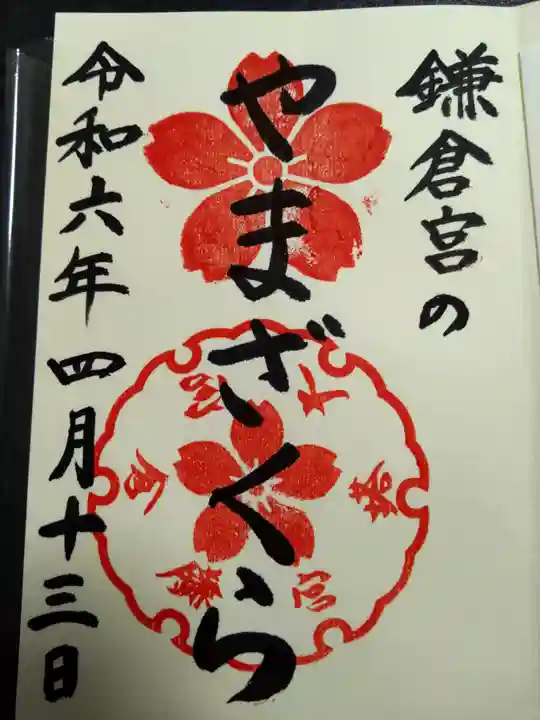 鎌倉宮の
やまざくら
令和六年四月十三日